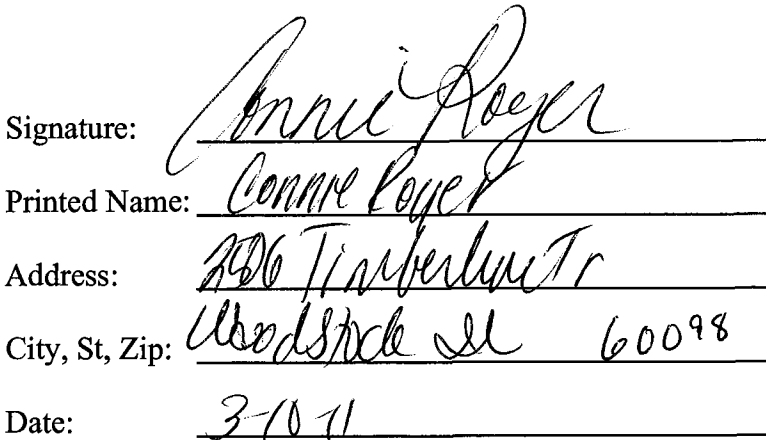 Signature: Connie Royer
Printed Name: Connie Royer
Address: Tr
City, St, Zip: Woodstock Il 60098
Date: 3-10-11